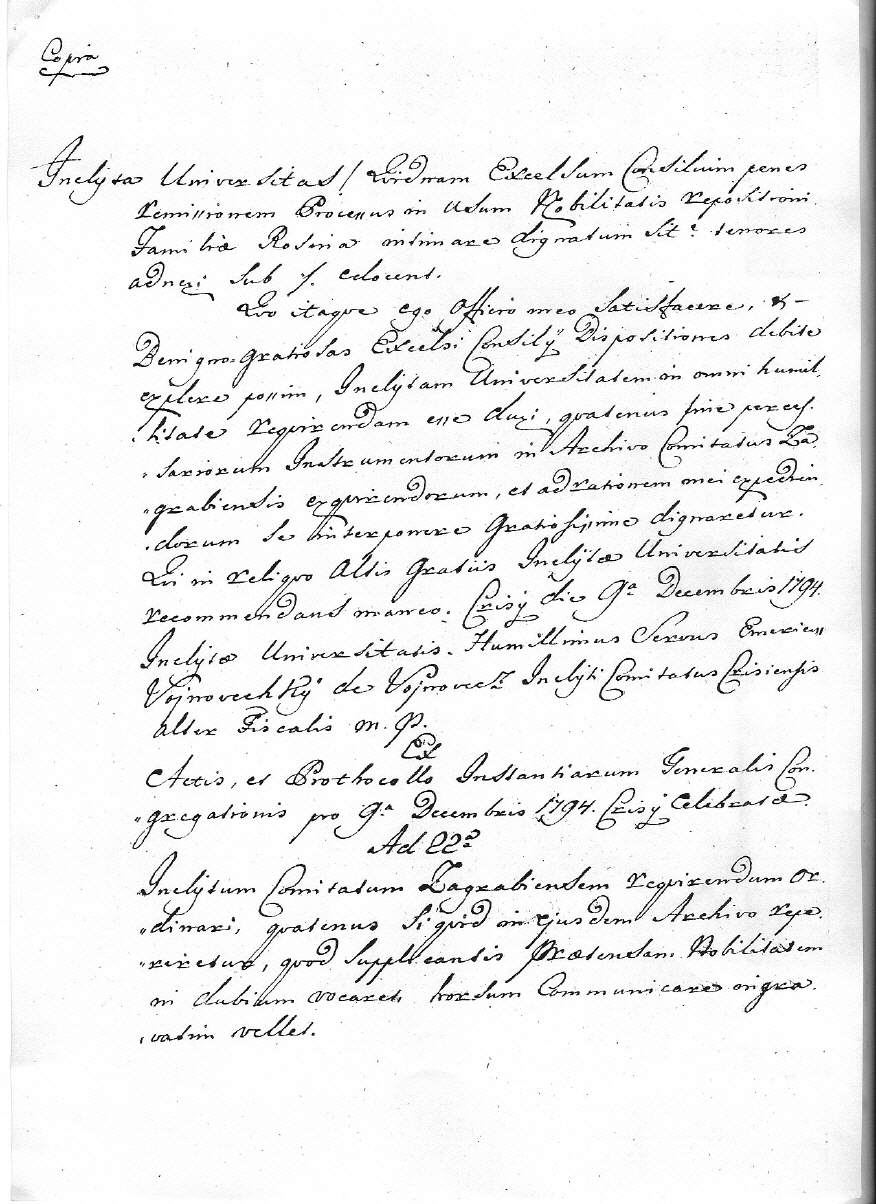 Copia
Inclyta Universitas! Quidnam Excelsum Consilium penes
remissionem Processus in Usum Nobilitatis repositioni
Familiæ Rosina intimare dignatum sit: tenores
adnexi sub /. edocent.
Quo itaque ego Officio meo Satisfacere, &
Benigno-Gratiosas Excelsi Consilÿ Dispositiones debite
explere possim, Inclytam Universitatem in omni humil
litate requirendam esse duxi, quatenus fine neces-
sariorum Instrumentorum in Archivo Comitatus Za
"grabiensis exquirendorum, et ad rationem mei expedien
dorum se interponere Gratiosissime dignaretur.
Qui in reliquo Altis Gratiis Inclytæ Universitatis
recommendans maneo. Crisÿ die 9a Decembris 1794.
Inclytæ Universitatis. Humillimus Servus Emericus
Vojnovechky de Vojnovecz Inclyti Comitatus Crisiensis
Alter Fiscalis m. p.
Ex
Actis, et Prothocollo Instantiarum Generalis Con-
"gregationis pro 9a Decembris 1794. Crisÿ Celebratæ
Ad 22a
Inclytum Comitatum Zagrabiensem requirendum or-
"dinari, quatenus siquid in ejusdem Archivo repe-
"riretur, quod supplicantis Prætensam Nobilitatem
in dubium vocaret, horsum Communicare ingra-
vatim vellet.